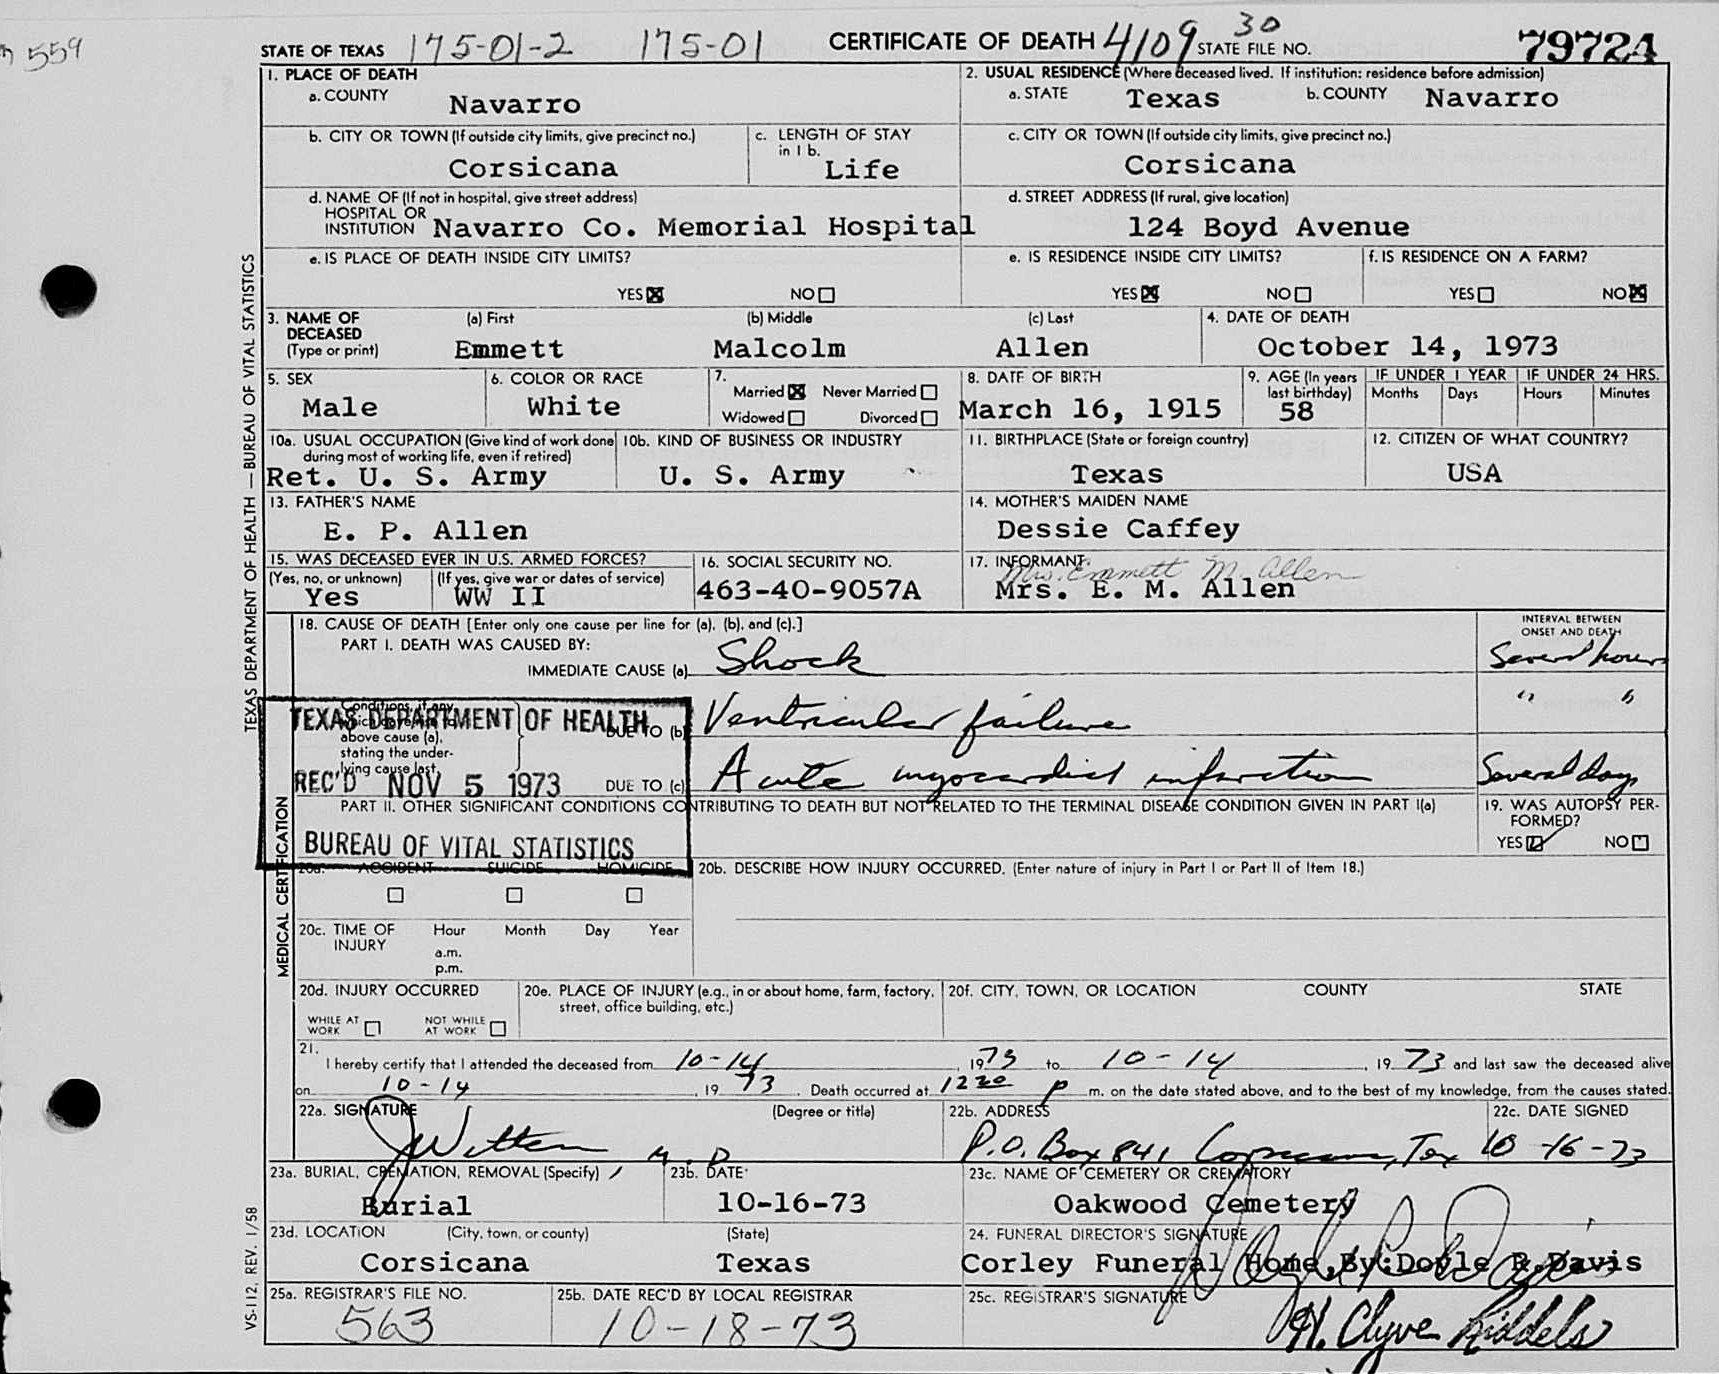 559
STATE OF TEXAS 175-01-2 175-01 CERTIFICATE OF DEATH 4109 30 STATE FILE NO. 79724
1. PLACE OF DEATH
a. COUNTY Navarro
2. USUAL RESIDENCE (Where deceased lived. If institution: residence before admission)
a. STATE Texas b. COUNTY Navarro
b. CITY OR TOWN (If outside city limits, give precinct no.) Corsicana
c. LENGTH OF STAY in 1 b. Life
c. CITY OR TOWN (If outside city limits, give precinct no.) Corsicana
d. NAME OF (If not in hospital, give street address)
HOSPITAL OR
INSTITUTION Navarro Co. Memorial Hospital
d. STREET ADDRESS (If rural, give location)
124 Boyd Avenue
e. IS PLACE OF DEATH INSIDE CITY LIMITS?
YES ☒ NO ☐
e. IS RESIDENCE INSIDE CITY LIMITS?
YES ☒ NO ☐
f. IS RESIDENCE ON A FARM?
YES ☐ NO ☒
3. NAME OF DECEASED (Type or print)
(a) First (b) Middle (c) Last
Emmett Malcolm Allen
4. DATE OF DEATH
October 14, 1973
5. SEX
Male
6. COLOR OR RACE
White
7.
Married ☒ Never Married ☐
Widowed ☐ Divorced ☐
8. DATE OF BIRTH
March 16, 1915
9. AGE (In years last birthday)
58
IF UNDER 1 YEAR
Months Days
IF UNDER 24 HRS.
Hours Minutes
10a. USUAL OCCUPATION (Give kind of work done during most of working life, even if retired)
Ret. U. S. Army
10b. KIND OF BUSINESS OR INDUSTRY
U. S. Army
11. BIRTHPLACE (State or foreign country)
Texas
12. CITIZEN OF WHAT COUNTRY?
USA
13. FATHER'S NAME
E. P. Allen
14. MOTHER'S MAIDEN NAME
Dessie Caffey
15. WAS DECEASED EVER IN U.S. ARMED FORCES?
(Yes, no, or unknown) (If yes, give war or dates of service)
Yes WW II
16. SOCIAL SECURITY NO.
463-40-9057A
17. INFORMANT
Mrs. Emmett M. Allen
Mrs. E. M. Allen
18. CAUSE OF DEATH [Enter only one cause per line for (a), (b), and (c).]
PART I. DEATH WAS CAUSED BY:
INTERVAL BETWEEN ONSET AND DEATH
IMMEDIATE CAUSE (a) Shock Several hours
Conditions, if any,
which gave rise to
above cause (a),
stating the under-
lying cause last.
DUE TO (b) Ventricular failure " "
DUE TO (c) Acute myocardial infarction Several days
TEXAS DEPARTMENT OF HEALTH
REC'D NOV 5 1973
BUREAU OF VITAL STATISTICS
PART II. OTHER SIGNIFICANT CONDITIONS CONTRIBUTING TO DEATH BUT NOT RELATED TO THE TERMINAL DISEASE CONDITION GIVEN IN PART I(a)
19. WAS AUTOPSY PERFORMED?
YES ☑ NO ☐
20a. ACCIDENT SUICIDE HOMICIDE
☐ ☐ ☐
20b. DESCRIBE HOW INJURY OCCURRED. (Enter nature of injury in Part I or Part II of Item 18.)
20c. TIME OF INJURY
Hour Month Day Year
a.m.
p.m.
20d. INJURY OCCURRED
WHILE AT WORK ☐ NOT WHILE AT WORK ☐
20e. PLACE OF INJURY (e.g., in or about home, farm, factory, street, office building, etc.)
20f. CITY, TOWN, OR LOCATION COUNTY STATE
21.
I hereby certify that I attended the deceased from 10-14, 1973 to 10-14, 1973 and last saw the deceased alive
on 10-14, 1973. Death occurred at 1220 p m. on the date stated above, and to the best of my knowledge, from the causes stated.
22a. SIGNATURE (Degree or title)
Witten M.D
22b. ADDRESS
P.O. Box 841 Corsicana, Tex
22c. DATE SIGNED
10-16-73
23a. BURIAL, CREMATION, REMOVAL (Specify)
Burial
23b. DATE
10-16-73
23c. NAME OF CEMETERY OR CREMATORY
Oakwood Cemetery
23d. LOCATION (City, town, or county) (State)
Corsicana Texas
24. FUNERAL DIRECTOR'S SIGNATURE
Corley Funeral Home, By: Doyle R. Davis
25a. REGISTRAR'S FILE NO.
563
25b. DATE REC'D BY LOCAL REGISTRAR
10-18-73
25c. REGISTRAR'S SIGNATURE
H. Clyve Riddels
TEXAS DEPARTMENT OF HEALTH — BUREAU OF VITAL STATISTICS
MEDICAL CERTIFICATION
VS-112, REV. 1/58